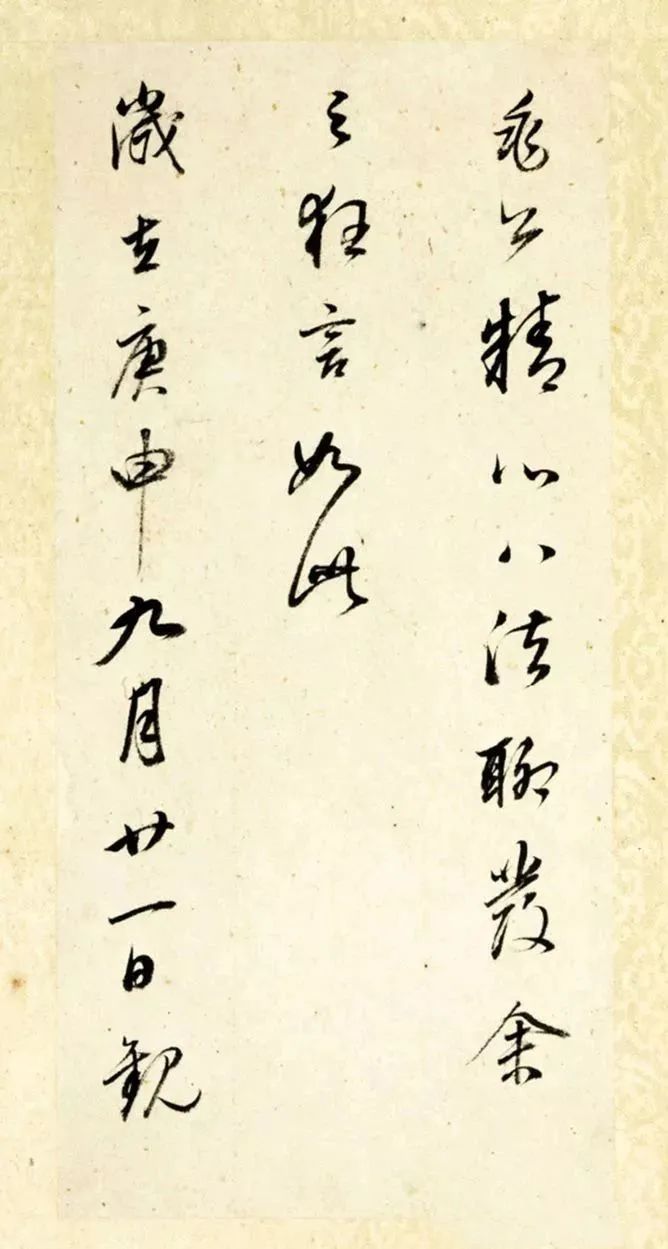 公精心八法聊發余
之狂言如此
歲在庚申九月廿一日觀